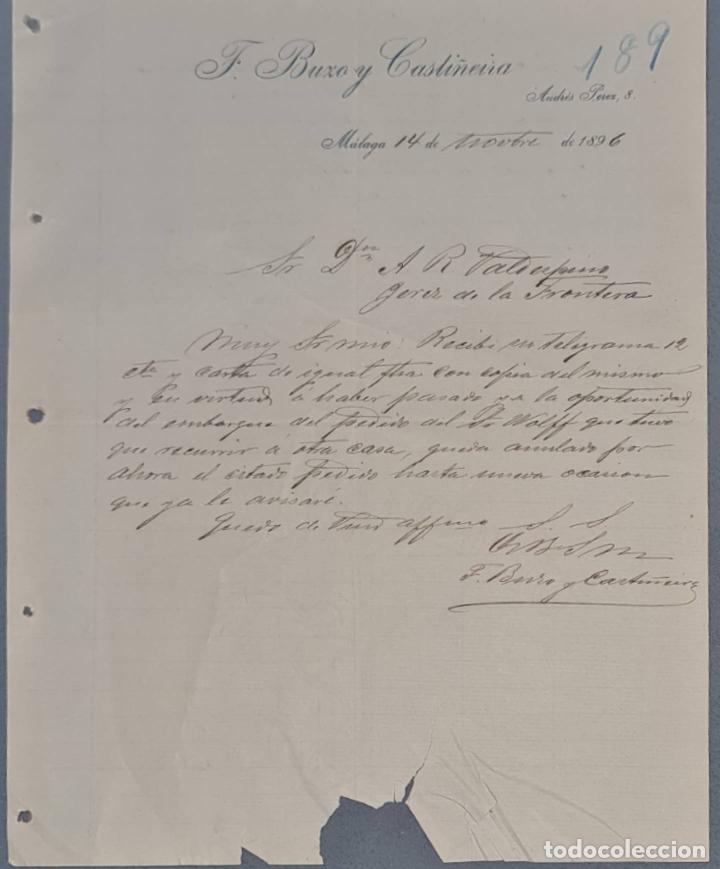 F. Buzo y Castiñeira
189
Andrés Perez, 8.
Málaga 14 de Novbre de 1896
Sr Dn A R Valdespino
Jerez de la Frontera
Muy Sr mio: Recibi su telegrama 12
cte y carta de igual fha con copia del mismo
y en virtud á haber pasado ya la oportunidad
del embarque del pedido del Sr Wolff que tuvo
que recurrir á otra casa, queda anulado por
ahora el citado pedido hasta nueva ocasion
que ya le avisaré.
Quedo de Vmd affmo S. S.
Q B S M
F. Buzo y Castiñeira
todocoleccion
todocoleccion.net